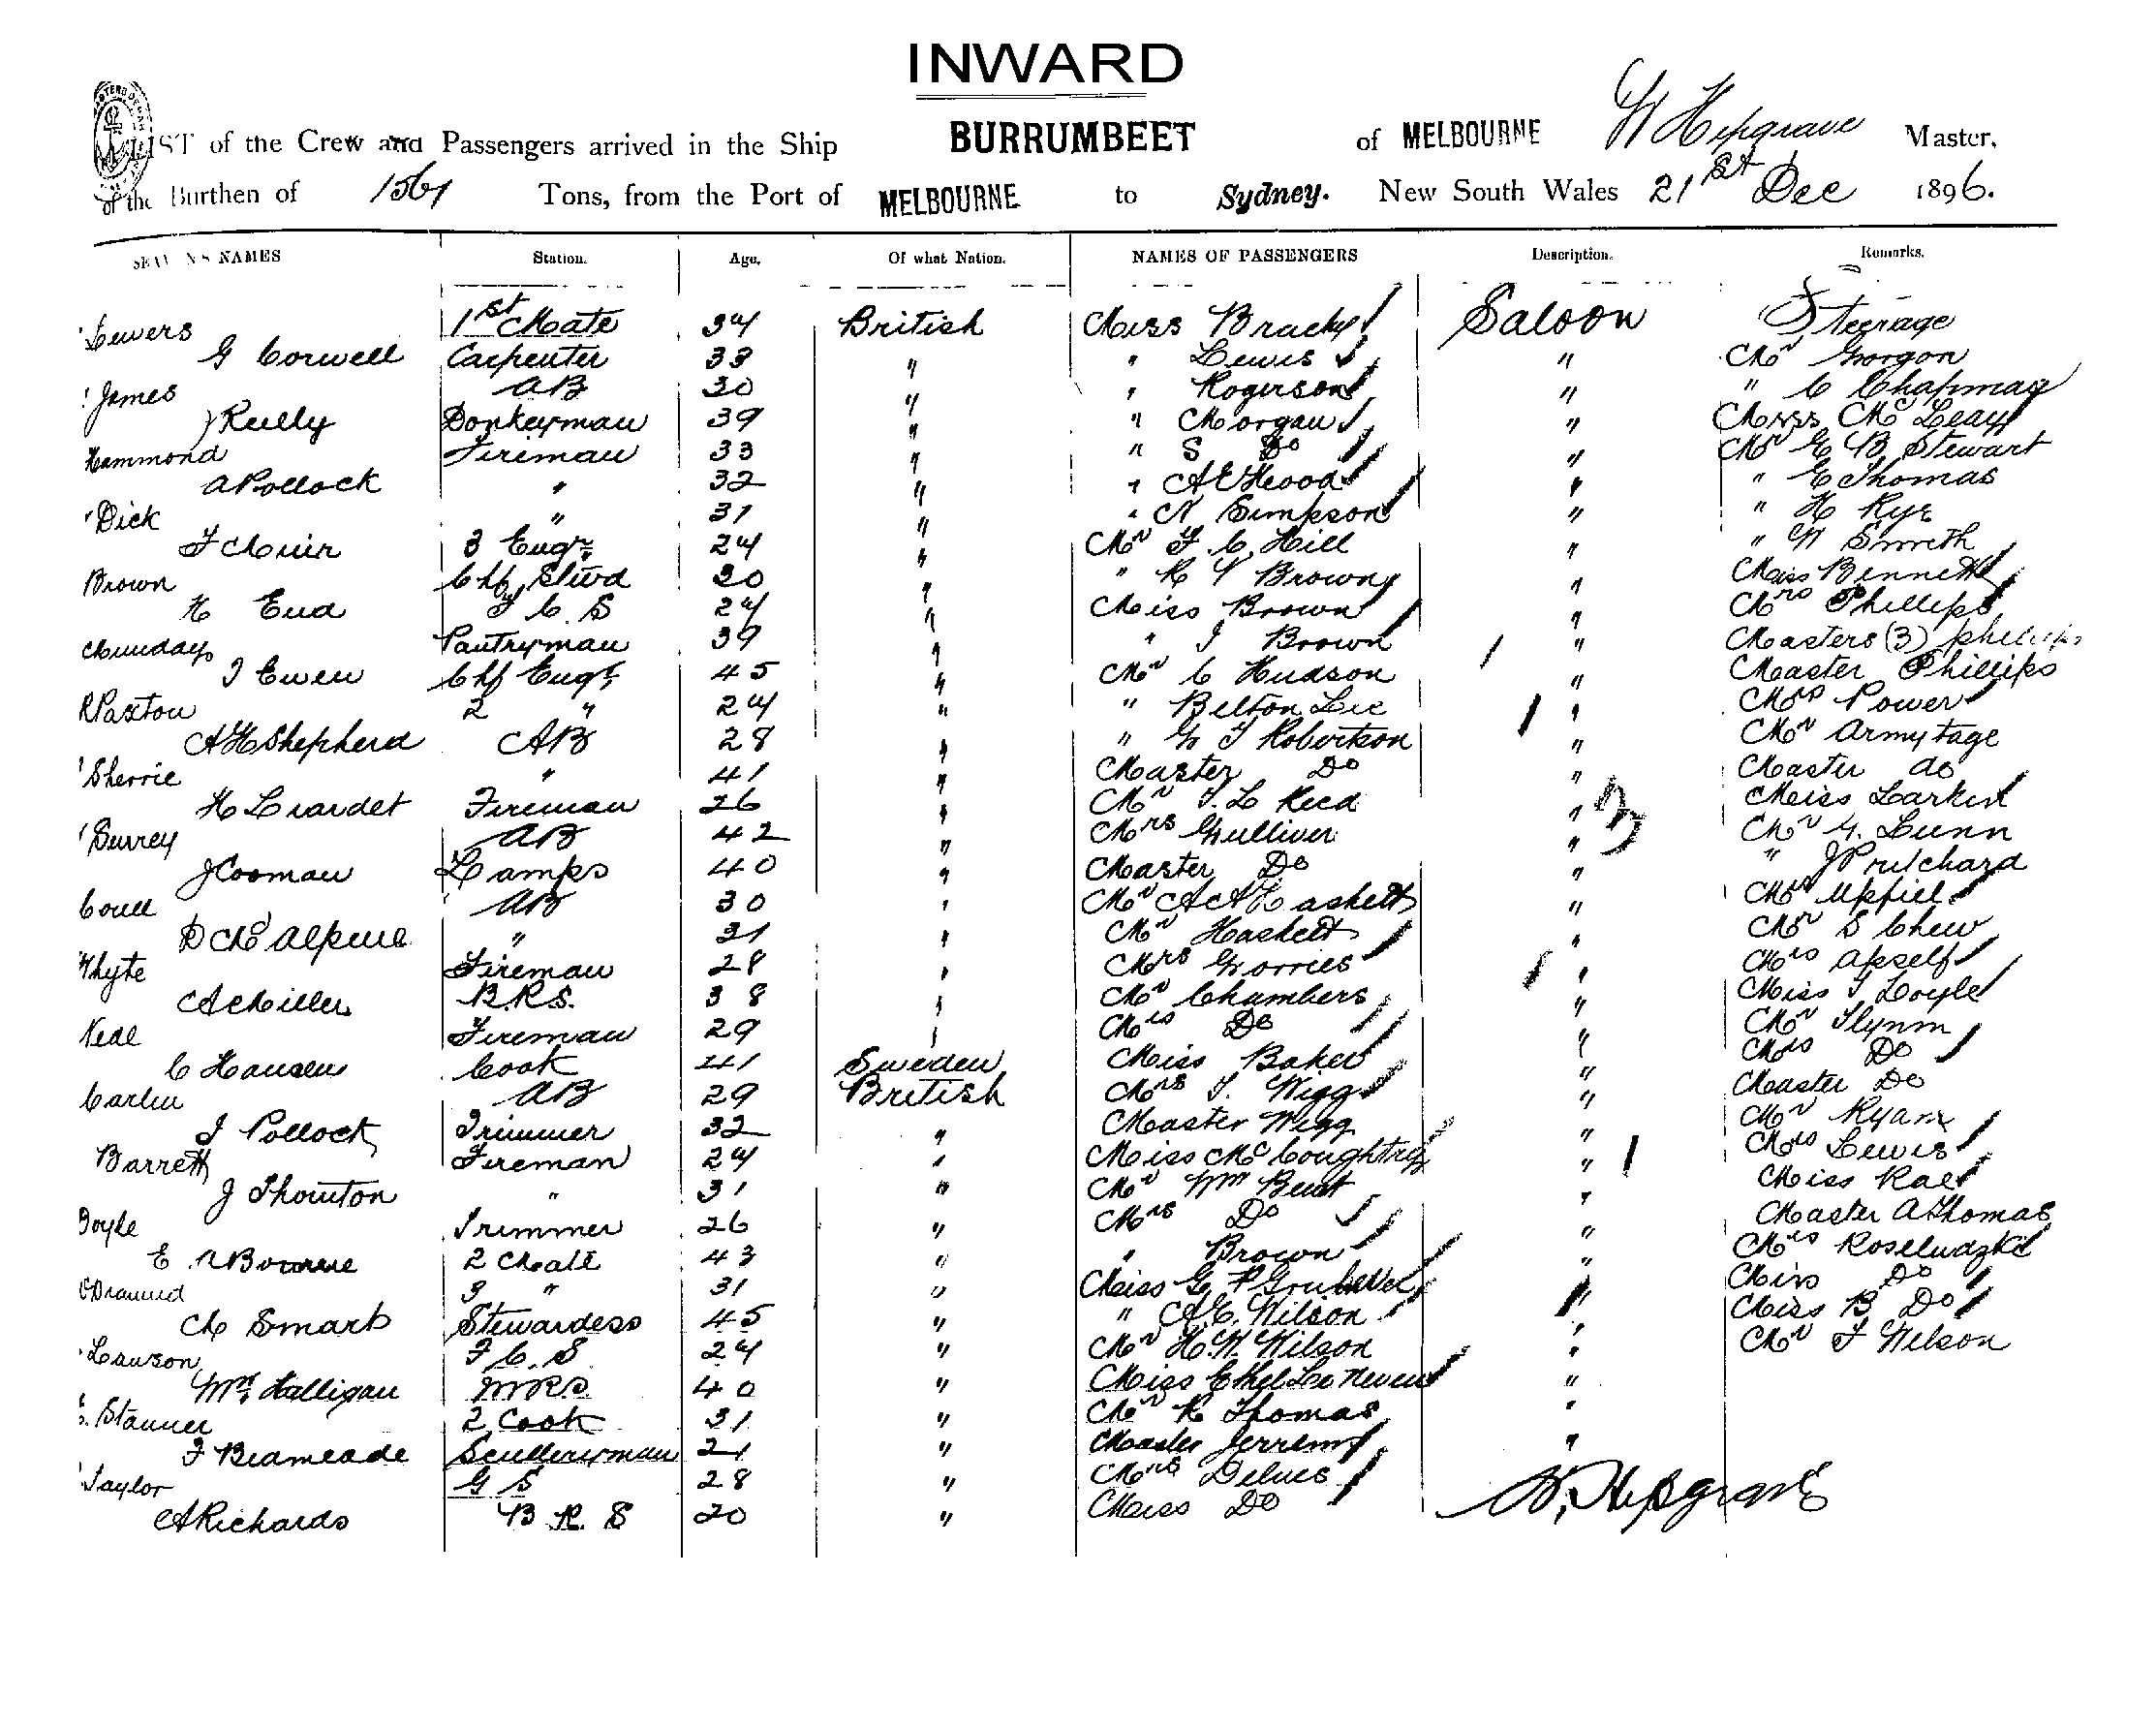 INWARD
LIST of the Crew and Passengers arrived in the Ship BURRUMBEET of MELBOURNE W Hipgrave Master,
of the Burthen of 1561 Tons, from the Port of MELBOURNE to Sydney. New South Wales 21st Dec 1896.
NAMES Station. Age. Of what Nation. NAMES OF PASSENGERS Description. Remarks.
Lewers 1st Mate 34 British Miss Bracky Saloon Steerage
G Corwell Carpenter 33 " " Lewis " Mr Gorgon
James AB 30 " " Rogerson " " C Chapman
Reilly Donkeyman 39 " " Morgan " Miss McLeay
Hammond Fireman 33 " " S Do " Mr G B Stewart
A Pollock " 32 " " A E Wood " " E Thomas
Dick " 31 " " N Simpson " " H Rye
F Muir 3 Engr 24 " Mr F. C. Hill " " W Smith
Brown Chf Stwd 30 " " R Y Brown " Miss Bennett
H Eud F C S 24 " Miss Brown " Mrs Phillips
Munday Pantryman 39 " " J Brown " Masters (3) Phillips
J Ewen Chf Engr 45 " Mr C Hudson " Master Phillips
R Paxton 2 " 24 " " Belton Lee " Mrs Power
A H Shepherd AB 28 " " G T Robertson " Mr Armytage
Sherrie " 41 " Master Do " Master do
H Liardet Fireman 26 " Mr T. L Reed " Miss Larkin
Surrey AB 42 " Mrs Gulliver " Mr G. Lunn
J Cooman Lamps 40 " Master Do " " J Pritchard
Coull AB 30 " Mr A A Haskett " Mrs Upfiel
D McAlpine " 31 " Mr Haskett " Mr S Chew
Whyte Fireman 28 " Mrs Gorries " Mrs Apself
A Miller B.R.S. 38 " Mr Chambers " Miss J Doyle
Neal Fireman 29 " Mrs Do " Mr Flynn
C Hansen Cook 41 Sweden Miss Baker " Mrs Do
Carlin AB 29 British Mrs T. Wigg " Master Do
J Pollock Trimmer 32 " Master Wigg " Mr Ryan
Barrett Fireman 24 " Miss McCoughtrey " Mrs Lewis
J Thornton " 31 " Mr Wm Bent " Miss Rae
Doyle Trimmer 26 " Mrs Do " Master A Thomas
E A Bourne 2 Mate 43 " " Brown " Mrs Roseludzki
3 " 31 " Miss G P " Miss Do
M Smart Stewardess 45 " " A. C. Wilson " Miss B Do
Lawson F C. S 24 " Mr H. W. Wilson " Mr F Nelson
Wm Halligan MRS 40 " Miss Ethel Le Neveu "
Stanner 2 Cook 31 " Mr R Thomas "
F Beameade Sculleryman 21 " Master Jerrem "
Taylor G S 28 " Mrs Delves
A Richards B R S 20 " Miss Do W. Hipgrave